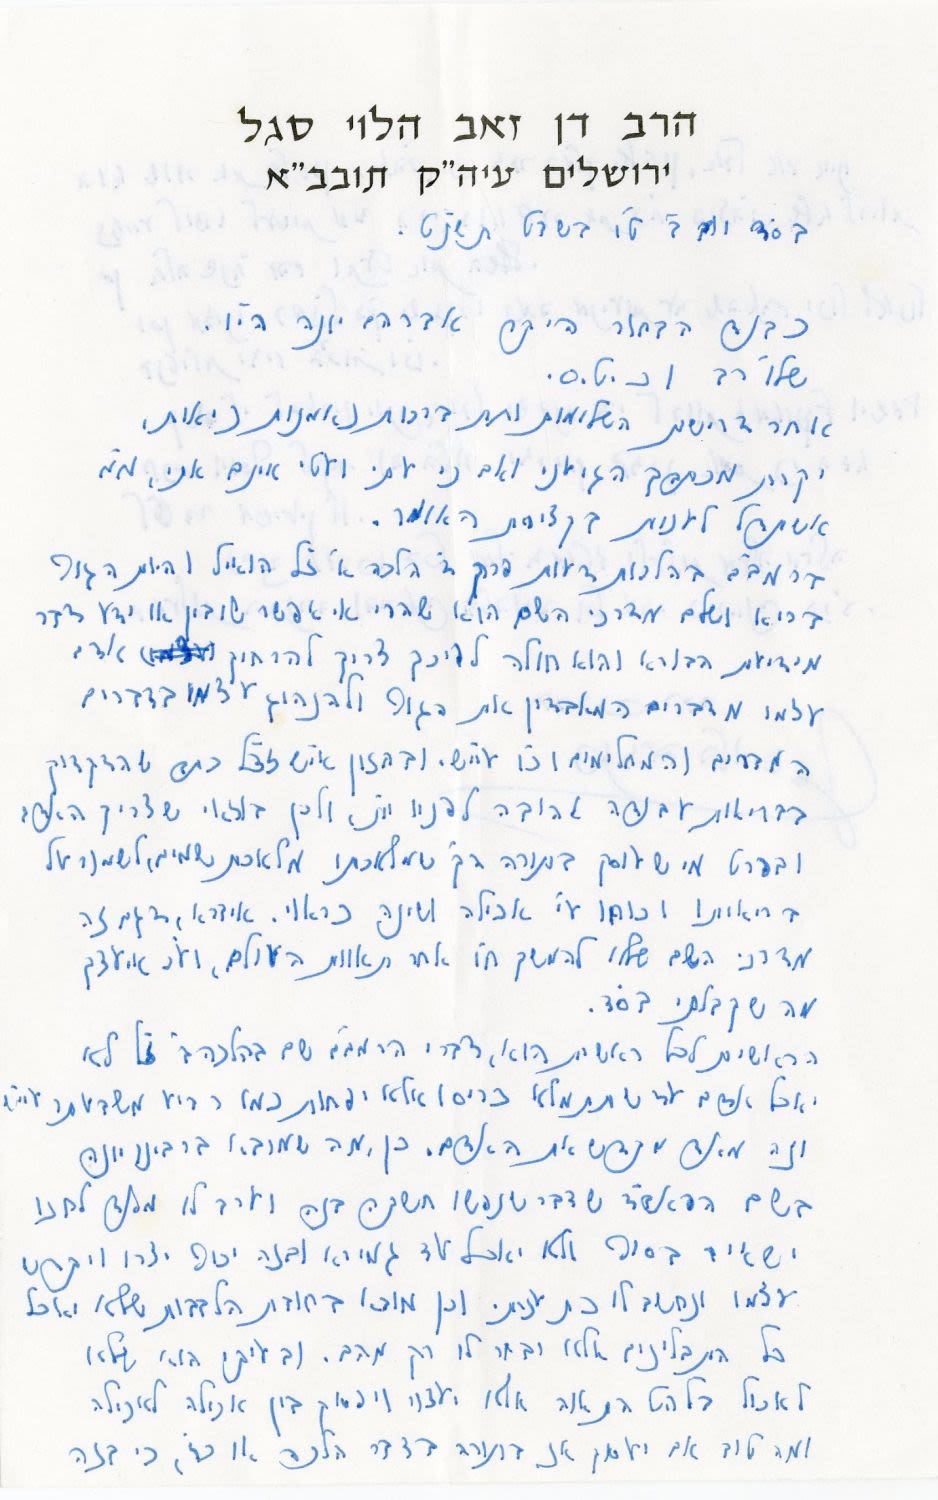 הרב דן זאב הלוי סגל
ירושלים עיה"ק תובב"א
בס"ד יום ב' ט"ו בשבט תשנ"ט.
כבוד הבחור היקר אברהם יונה הי"ו.
שלו' רב וכ"ט.ס.
אחר דרישת השלימות ותת ברכות נאמנות כיאות,
יקרת מכתבך הגיעני ואם כי עתי ועטי אינם אתי, מ"מ
אשתדל לענות בקצירת האומר.
ברמב"ם בהלכות דעות פרק ד' הלכה א' ז"ל הואיל והיות הגוף
בריא ושלם מדרכי השם הוא שהרי אי אפשר שיבין או ידע דבר
מידיעת הבורא והוא חולה לפיכך צריך להרחיק אדם
עצמו מדברים המאבדין את הגוף ולהנהיג עצמו בדברים
המברים והמחלימים וכו' עיי"ש. ובחזון אי"ש זצ"ל כתב שהדקדוק
בבריאות עבודה אהובה לפניו ית', ולכן בודאי שצריך האדם
ובפרט מי שעוסק בתורה הק' שמלאכתו מלאכת שמים, לשמור על
בריאותו וכוחו ע"י אכילה ושינה כראוי. אידרא, דגם זה
מדרכי השם שלא להמשך ח"ו אחר תאוות העולם, וע"כ איעצך
מה שקבלתי בס"ד.
הראשית לכל ראשית הוא, דברי הרמב"ם שם בהלכה ב' ז"ל לא
יאכל אדם עד שתתמלא כריסו אלא יפחות כמו רביע משבעתו עיי"ש
וזה מאד מקדש את האדם. כן, מה שמובא ברבינו יונה
בשם הראב"ד שדבר שנפשו חשקה בה וערב לו מאד לחכו
ישאיר בסוף ולא יאכל עד גמירא ובזה יכוף יצרו ויקדש
עצמו ונחשב לו כתענית. וכן מובא בחובת הלבבות שלא יאכל
כל התבלינים אלא יבחר לו רק מהם. ובעיקר הוא שלא
לאכול בלהט התאוה אלא יעצור ויפסיק בין אכילה לאכילה
ומה טוב אם יעסוק אז בתורה בדבר הלכה או כד', כי בזה